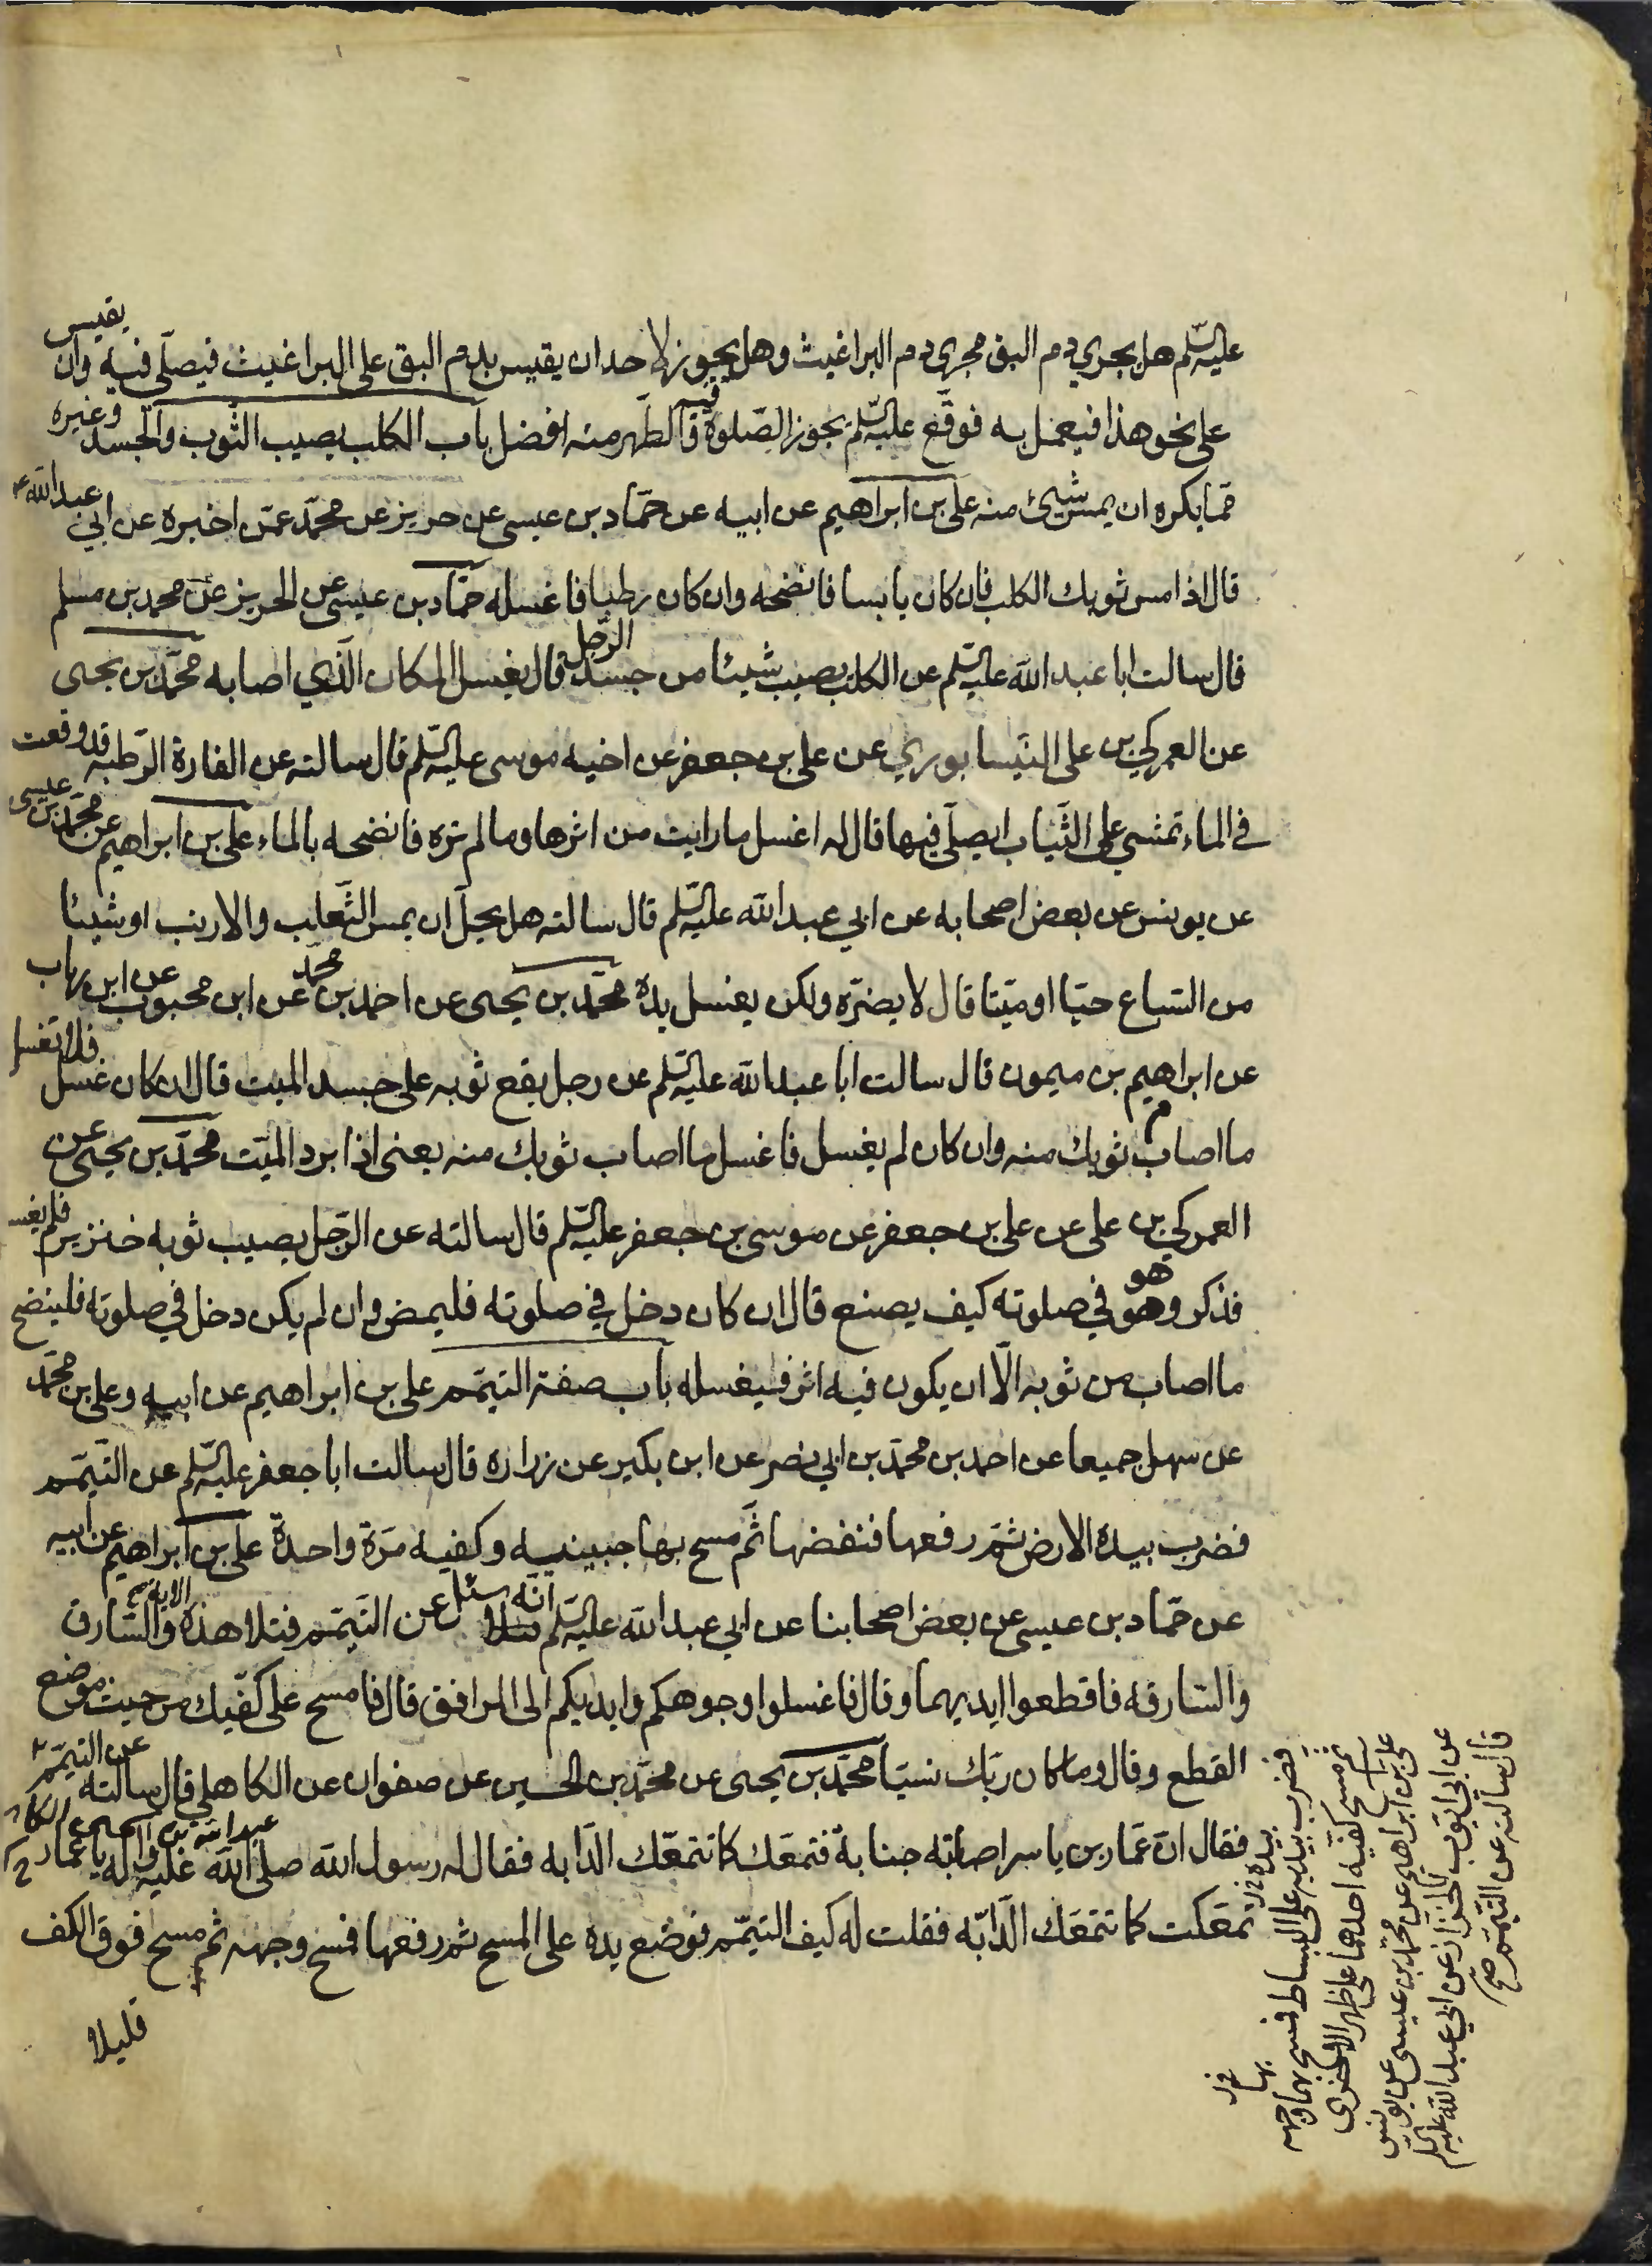 عليه السّلم هل يجري دم البق مجرى دم البراغيث وهل يجوز لاحد ان يقيس بدم البق على البراغيث فيصلّى فيه وان يقيس
على نحو هذا فيعمل به فوقّع عليه السّلم يجوز الصّلوة فيه والطّهر منه افضل باب الكلب يصيب الثوب والجسد وغيره
ممّا يكره ان يمسّ شيئ منه علي بن ابراهيم عن ابيه عن حمّاد بن عيسى عن حريز عن محمّد عمّن اخبره عن ابي عبد الله ع
قال اذا مس ثوبك الكلب فان كان يابسا فانضحه وان كان رطبا فاغسله حمّاد بن عيسى عن الحريز عن محمد بن مسلم
قال سالت ابا عبد الله عليه السّلم عن الكلب يصيب شيئا من جسد الرّجل قال يغسل المكان الّذي اصابه محمّد بن يحيى
عن العمركي بن علي النّيسابوري عن علي بن جعفر عن اخيه موسى عليه السّلم قال سالته عن الفارة الرّطبه قد وقعت
في الماء تمشي على الثّياب ايصلّى فيها قال له اغسل ما رايت من اثرها وما لم تره فانضحه بالماء علي بن ابراهيم عن محمّد بن عيسى
عن يونس عن بعض اصحابه عن ابي عبد الله عليه السّلم قال سالته هل يحلّ ان يمس الثّعلب والارنب او شيئا
من السّباع حيّا او ميّتا قال لا يضرّه ولكن يغسل يده محمّد بن يحيى عن احمد بن محمّد عن ابن محبوب عن ابن رياب
عن ابراهيم بن ميمون قال سالت ابا عبد الله عليه السّلم عن رجل يقع ثوبه على جسد الميت قال ان كان غسل فلا تغسل
ما اصاب ثوبك منه وان كان لم يغسل فاغسل ما اصاب ثوبك منه يعنى اذا برد الميّت محمّد بن يحيى عن
العمركي بن علي عن علي بن جعفر عن موسى بن جعفر عليه السّلم قال سالته عن الرّجل يصيب ثوبه خنزير فلم يغسـ
فذكر وهو هو في صلوته كيف يصنع قال ان كان دخل في صلوته فليمض وان لم يكن دخل في صلوته فلينضح
ما اصاب من ثوبه الّا ان يكون فيه اثر فيغسله باب صفة التيمّم علي بن ابراهيم عن ابيه وعلي بن محمّد
عن سهل جميعا عن احمد بن محمّد بن ابي نصر عن ابن بكير عن زراره قال سالت ابا جعفر عليه السّلم عن التّيمّم
فضرب بيده الارض ثمّ رفعها فنفضها ثمّ مسح بها جبينيه وكفيه مرّة واحدة علي بن ابراهيم عن ابيه
عن حمّاد بن عيسى عن بعض اصحابنا عن ابي عبد الله عليه السّلم انّه سئل عن التّيمّم فتلا هذه الاية والسّارق
والسّارقه فاقطعوا ايديهما وقال فاغسلوا وجوهكم وايديكم الى المرافق قال فامسح على كفّيك من حيث موضع
القطع وقال وما كان ربّك نسيّا محمّد بن يحيى عن محمّد بن الحسين عن صفوان عن الكاهلي قال سالته عن التيمّم
فقال انّ عمّار بن ياسر اصابته جنابة فتمعّك كما تتمعّك الدّابه فقال له رسول الله صلّى الله عليه واله يا عمّار
تمعّكت كما تتمعّك الدّابّه فقلت له كيف التيمّم فوضع يده على المسح ثم رفعها فمسح وجهه ثم مسح فوق الكف
قليلا
فضرب بيديه على البساط فمسح بهما وجهه
ثم مسح كفّيه احدهما على ظهر الاخرى
علي بن ابراهيم عن محمّد بن عيسى عن يونس
عن ابي ايّوب الخزّاز عن ابي عبد الله عليه السّلم
قال سالته عن التّيمّم صح